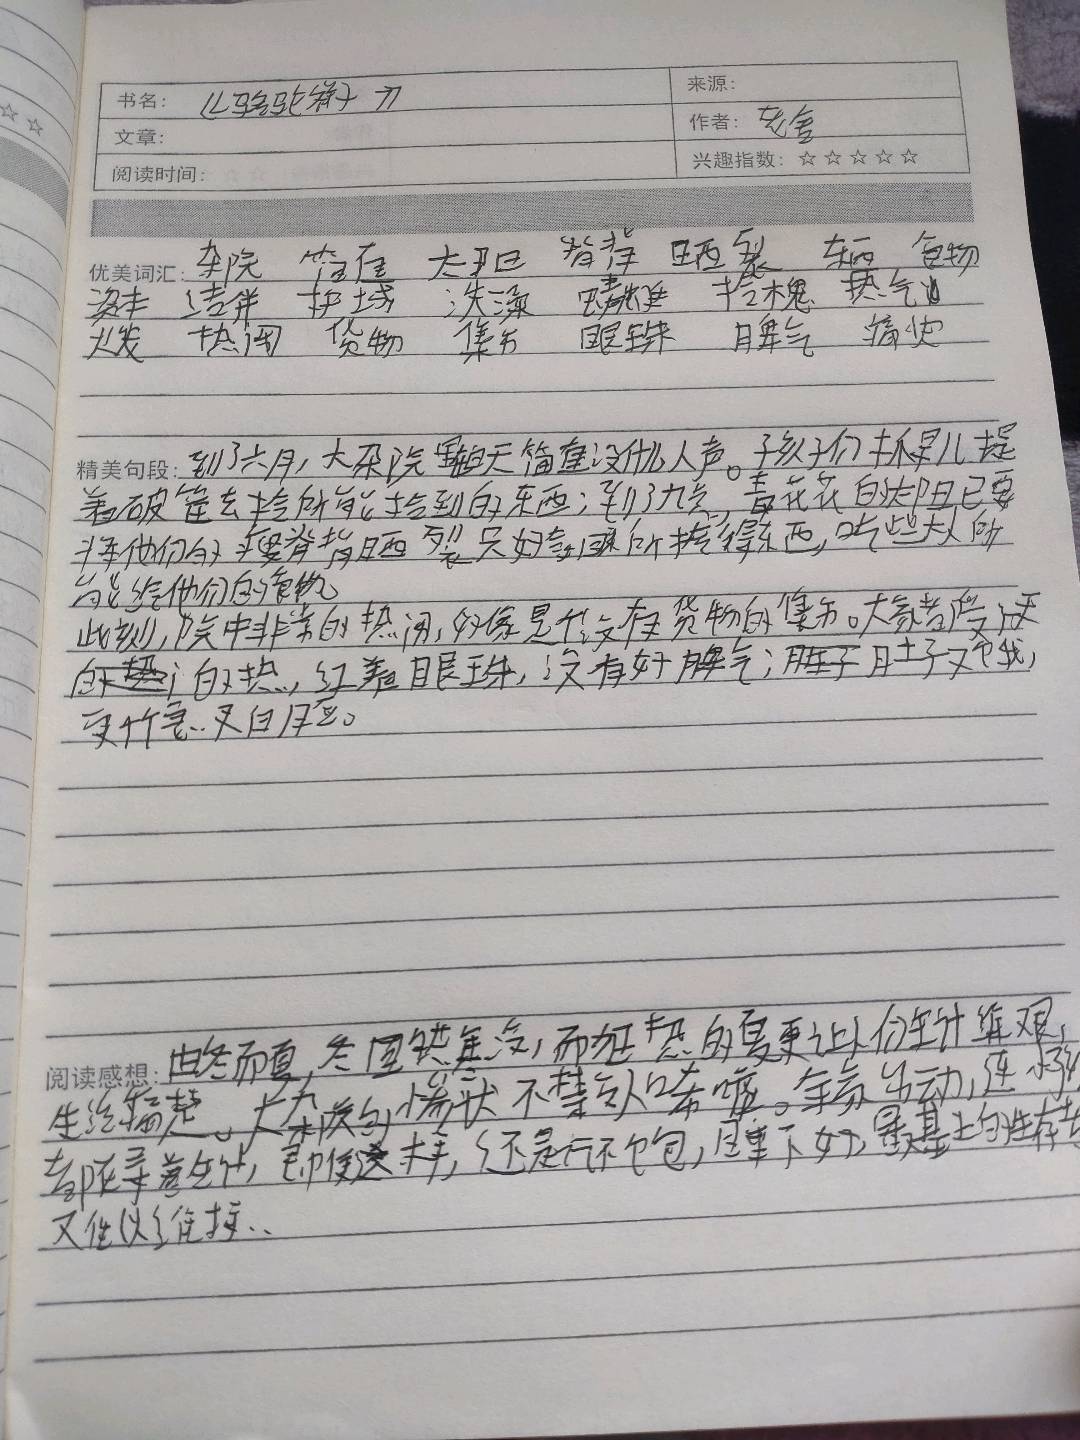 书名： 《骆驼祥子》
来源：
文章：
作者： 老舍
阅读时间：
兴趣指数：☆☆☆☆☆
优美词汇： 杂院 筐 太阳 脊背 晒裂 东西 食物
结伴 护城 洗澡 蜻蜓 捡槐 热气
火发 热闹 货物 集市 眼珠 脾气 痛快
精美句段： 到了六月，大杂院里白天简直没什么人声。孩子们抓早儿提
着破筐去拾所能拾到的东西；到了九点，毒花花的太阳已要
将他们的瘦脊背晒裂 只好拿回所拾得东西，吃些大人所
能给他们的食物。
此刻，院中非常的热闹，好像是个没有货物的集市。大家都受
的热，红着眼珠，没有好脾气；肚子又饿，
又白
阅读感想： 由冬而夏，冬 而 热的夏更让人们生计维艰，
生活 大杂院的惨状不禁令人唏嘘。全家出动，连孩
都 着生计，即使这样，还是
又难以维持..